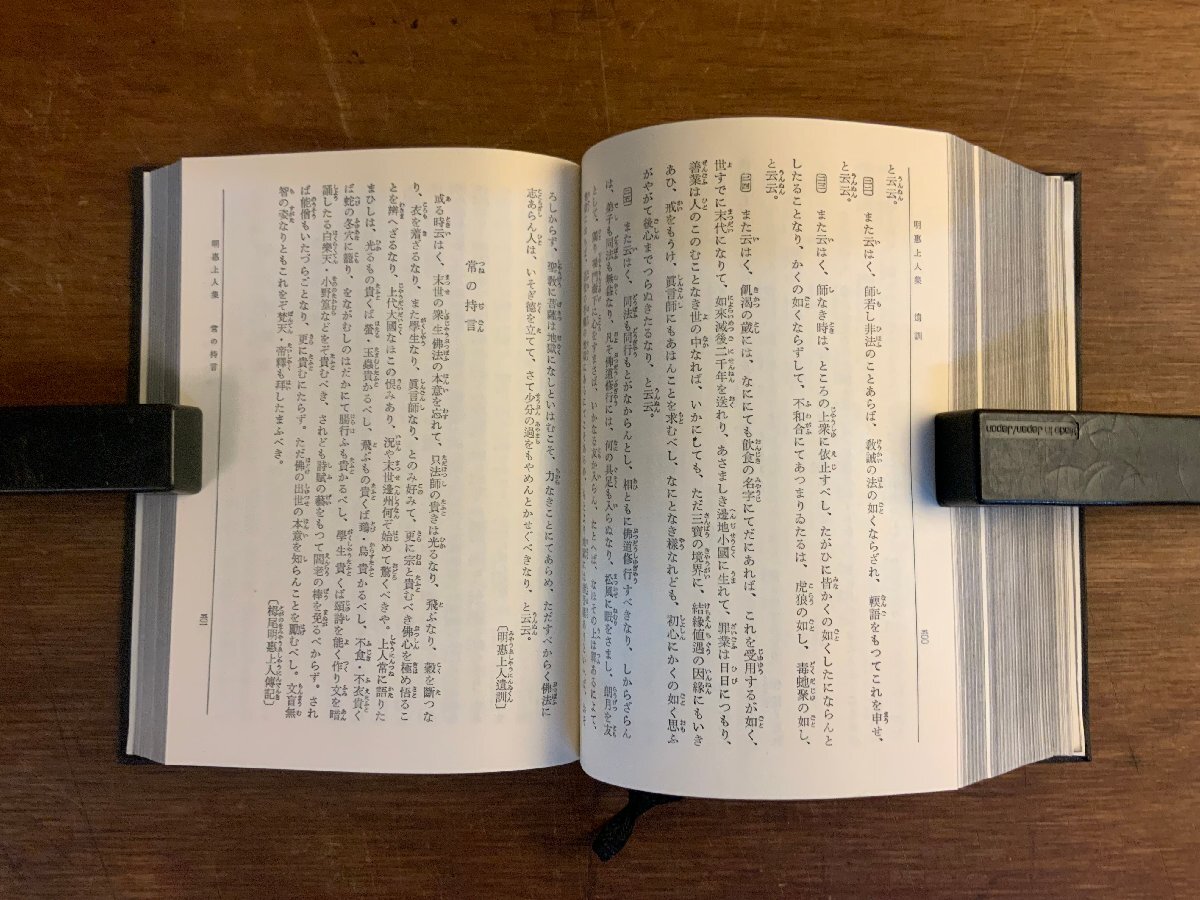 明惠上人集　遺訓
と云云。
〔三〕　また云はく、師若し非法のことあらば、敎誡の法の如くならざれ、軟語をもつてこれを申せ、
と云云。
また云はく、師なき時は、ところの上衆に依止すべし、たがひに皆かくの如くしたにならんと
したることなり、かくの如くならずして、不和合にてあつまりゐたるは、虎狼の如し、毒虵聚の如し、
と云云。
〔四〕　また云はく、飢渴の歲には、なににても飮食の名字にてだにあれば、これを受用するが如く、
世すでに末代になりて、如來滅後二千年を送れり、あさましき邊地小國に生れて、罪業は日日につもり、
善業は人のこのむことなき世の中なれば、いかにしても、ただ三寶の境界に、結緣値遇の因緣にもいき
あひ、戒をもうけ、眞言師にもあはんことを求むべし、なにとなき樣なれども、初心にかくの如く思ふ
がやがて後心までつらぬきたるなり、と云云。
また云はく、同法も同行もとがなからんとし、相ともに佛道修行すべきなり、しからざらん
は、弟子も同法も無益なり、凡そ佛道修行には、何の具足も入らぬなり、松風に睡をさまし、朗月を友
として、
五〇〇
ろしからず、聖敎に菩薩は地獄になしといはむこそ、力なきことにてあらめ、ただすべからく佛法に
志あらん人は、いそぎ德を立てて、さて少分の過をもやめんとかせぐべきなり、と云云。
〔明惠上人遺訓〕
常の持言
或る時云はく、末世の衆生佛法の本意を忘れて、只法師の貴きは光るなり、飛ぶなり、穀を斷つな
り、衣を着ざるなり、また學生なり、眞言師なり、とのみ好みて、更に宗と貴むべき佛心を極め悟るこ
とを辨へざるなり、上代大國なほこの恨みあり、況や末世邊州何ぞ始めて驚くべきや。上人常に語りた
まひしは、光るもの貴くば螢・玉蟲貴かるべし、飛ぶもの貴くば鵄・烏貴かるべし、不食・不衣貴く
ば蛇の冬穴に籠り、をながむしのはだかにて腸行ふも貴かるべし、學生貴くば頌詩を能く作り文を
誦したる白樂天・小野篁などをぞ貴むべき、されども詩賦の藝をもつて閻老の棒を免るべからず。され
ば能僧もいたづらごとなり、更に貴むにたらず。ただ佛の出世の本意を知らんことを勵むべし。文盲無
智の姿なりともこれをぞ梵天・帝釋も拜したまふべき。
〔栂尾明惠上人傳記〕
明惠上人集　常の持言
五〇一
Made in Japan/Japon